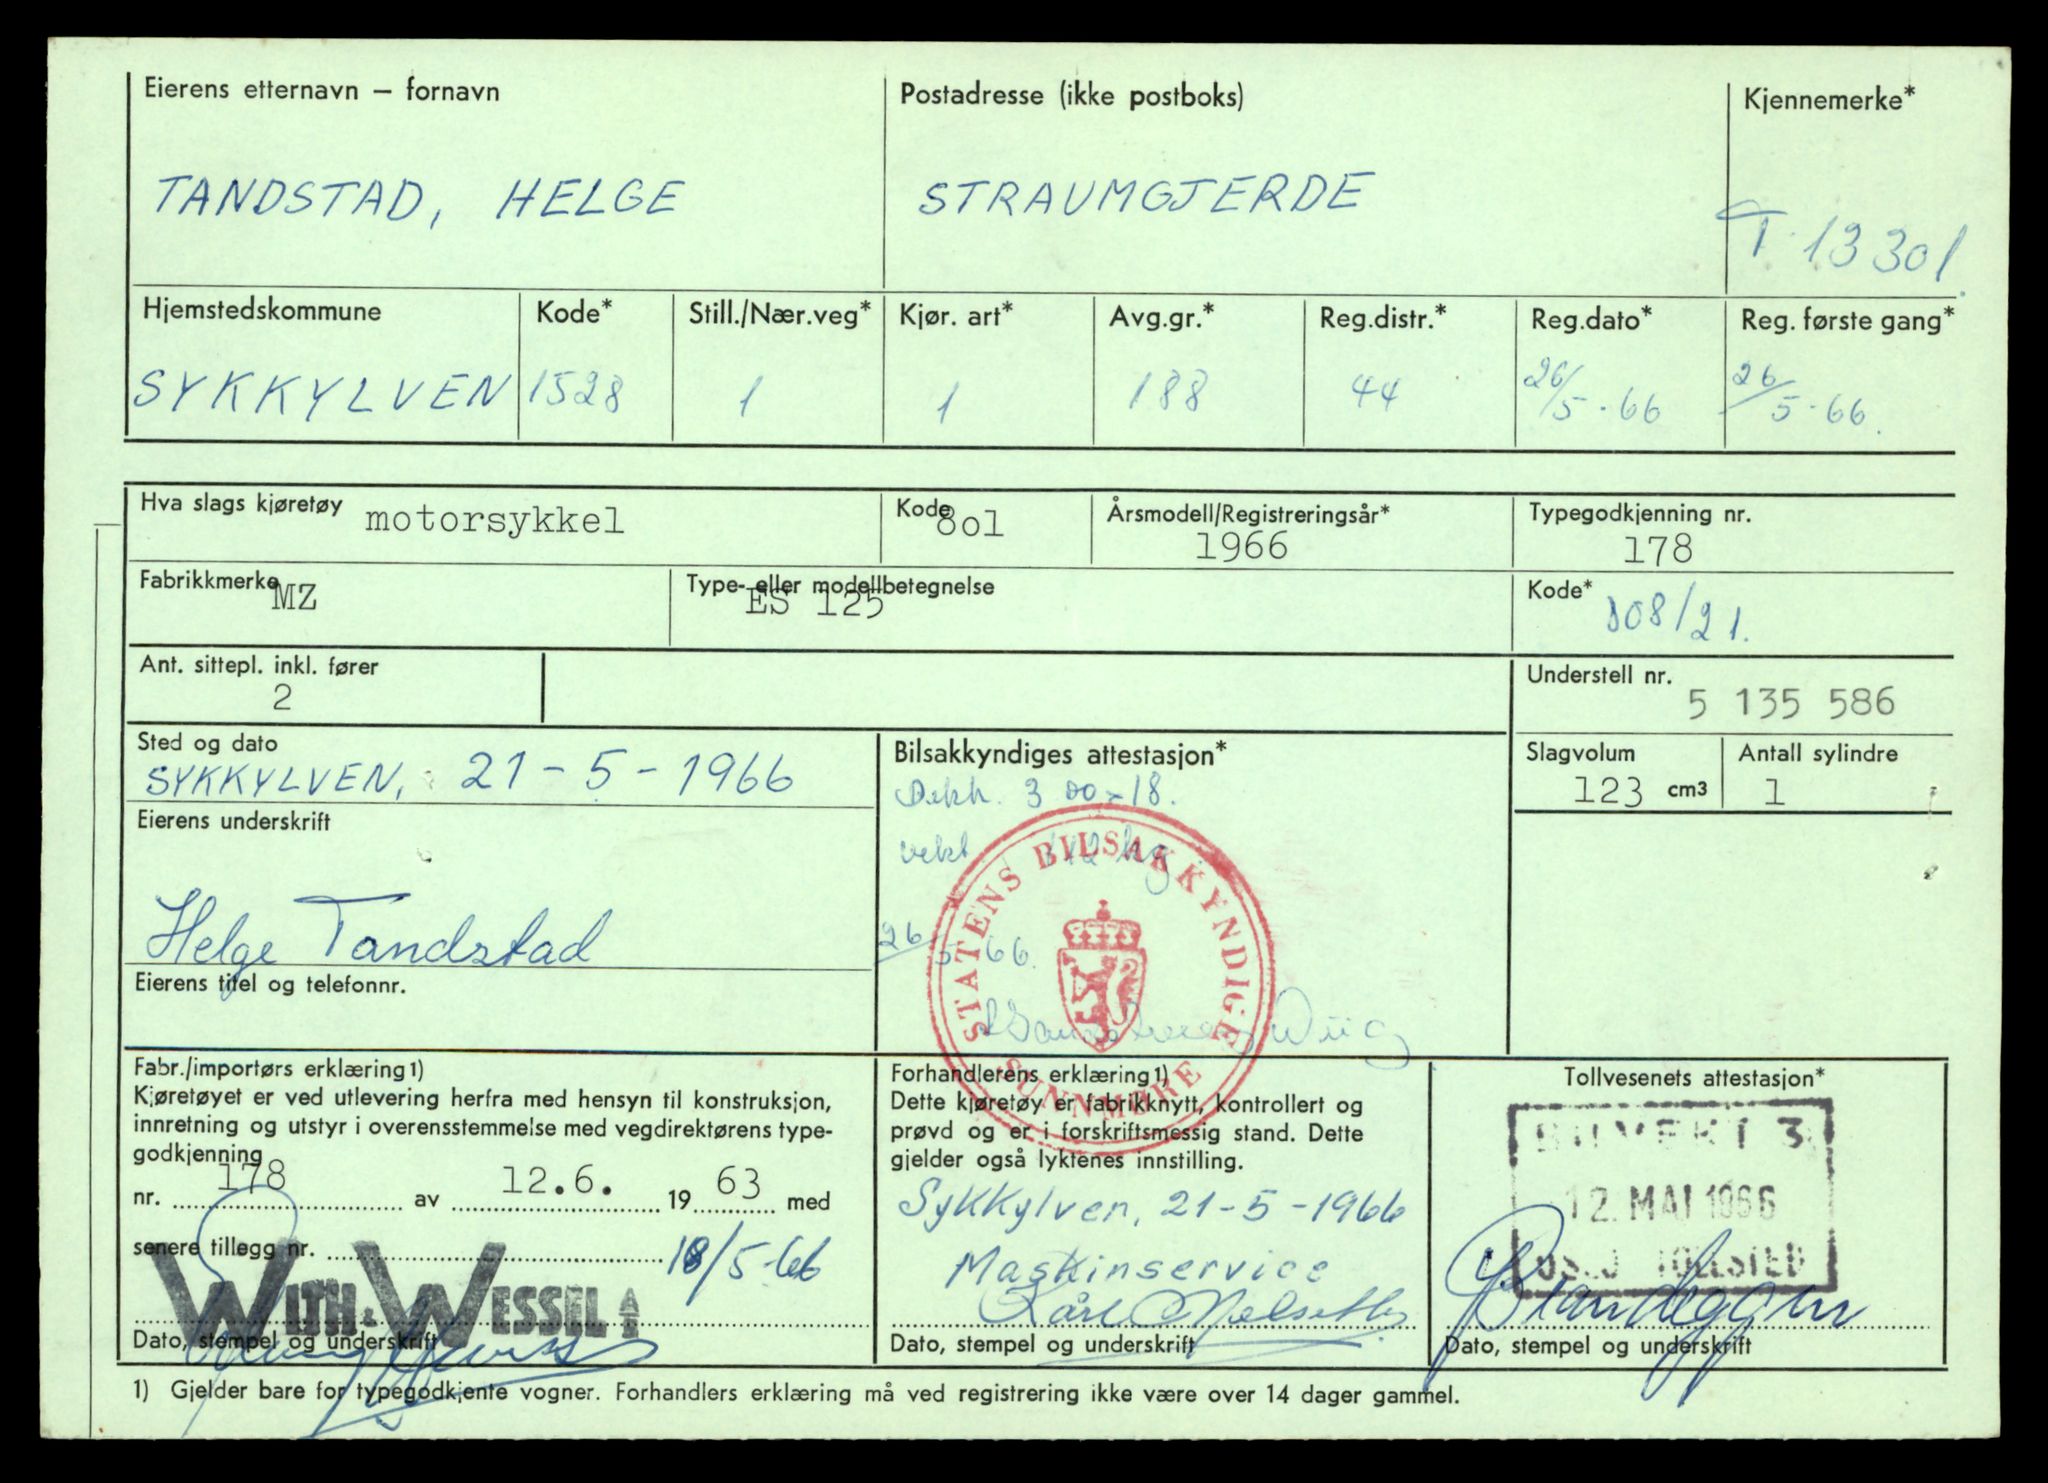 Eierens etternavn – fornavn
Postadresse (ikke postboks)
Kjennemerke*
TANDSTAD, HELGE
STRAUMGJERDE
T-13301.
Hjemstedskommune
Kode*
Still./Nær.veg*
Kjør. art*
Avg.gr.*
Reg.distr.*
Reg.dato*
Reg. første gang*
SYKKYLVEN
1528
1
1
188
44
26/5-66
26/5-66.
Hva slags kjøretøy motorsykkel
Kode 8ol
Årsmodell/Registreringsår* 1966
Typegodkjenning nr. 178
Fabrikkmerke MZ
Type- eller modellbetegnelse ES 125
Kode* 808/21.
Ant. sittepl. inkl. fører
2
Understell nr.
5 135 586
Sted og dato
SYKKYLVEN, 21-5-1966
Bilsakkyndiges attestasjon*
Dekk. 3 00-18.
vekt 112 kg
26/5-66.
Wiig
STATENS BILSAKKYNDIGE
SUNNMØRE
Slagvolum
123 cm3
Antall sylindre
1
Eierens underskrift
Helge Tandstad
Eierens titel og telefonnr.
Fabr./importørs erklæring1)
Kjøretøyet er ved utlevering herfra med hensyn til konstruksjon,
innretning og utstyr i overensstemmelse med vegdirektørens type-
godkjenning
nr. 178 av 12.6. 19 63 med
senere tillegg nr.
18/5-66
WITH & WESSEL A/S
Dato, stempel og underskrift
Forhandlerens erklæring1)
Dette kjøretøy er fabrikknytt, kontrollert og
prøvd og er i forskriftsmessig stand. Dette
gjelder også lyktenes innstilling.
Sykkylven, 21-5-1966
Maskinservice
Kåre
Dato, stempel og underskrift
Tollvesenets attestasjon*
3
12. MAI 1966
OSLO TOLLSTED
Dato, stempel og underskrift
1) Gjelder bare for typegodkjente vogner. Forhandlers erklæring må ved registrering ikke være over 14 dager gammel.